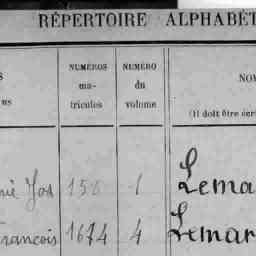 RÉPERTOIRE ALPHABÉT
S
ns
NUMÉROS
ma-
tricules
NUMÉRO
du
volume
NOM
(Il doit être écri
nie Jos 158 1 Lema
Francois 1674 4 Lemar